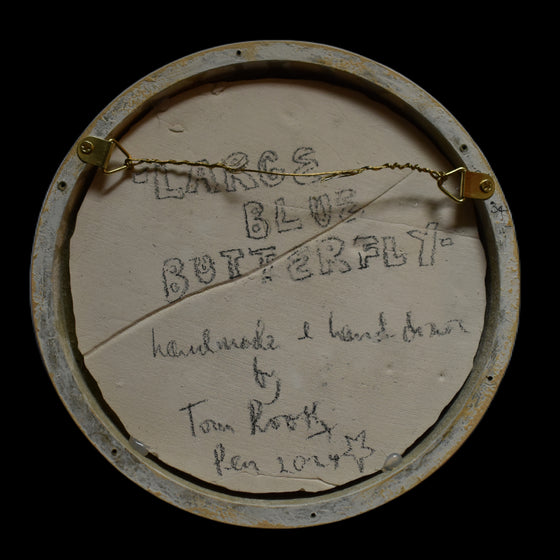 -LARGE
BLUE
BUTTERFLY-
handmade & hand
by
Tom Rooth
Pen 2024
34